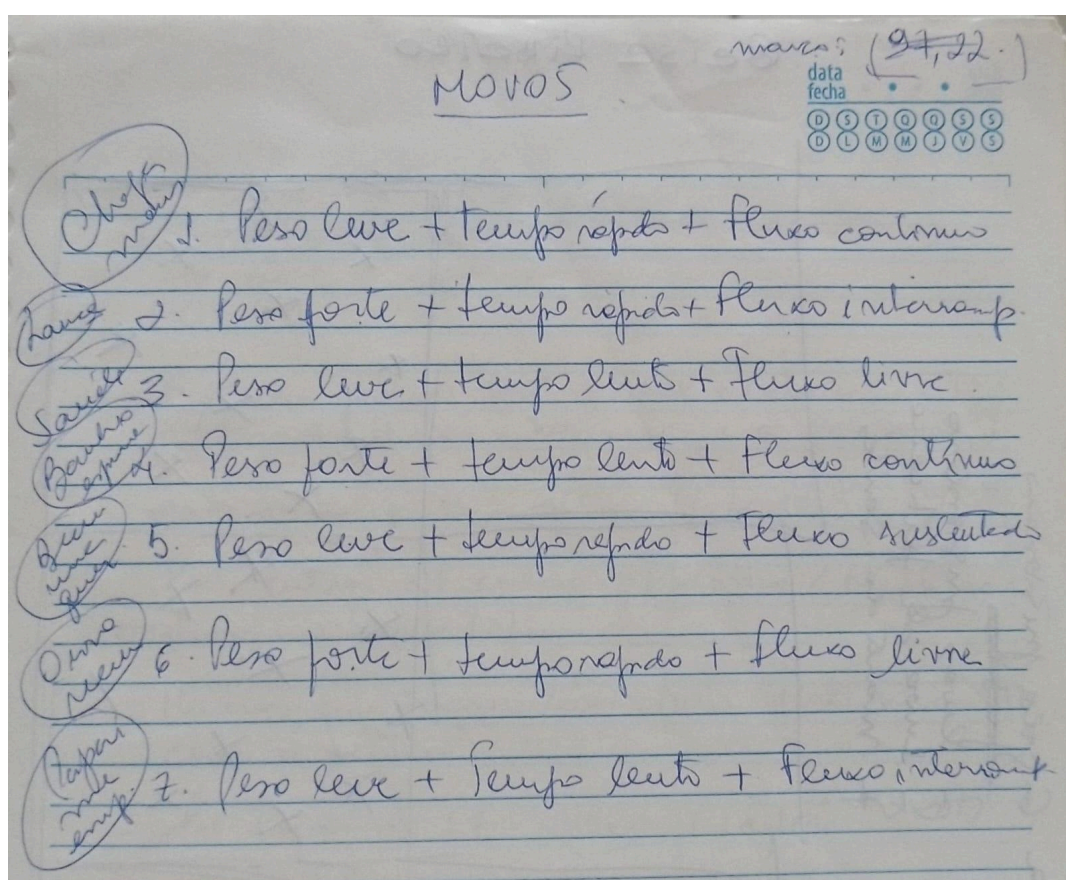 março: (97,22.)
NOVOS
data
fecha
D S T Q Q S S
D L M M J V S
1. Peso leve + tempo rápido + fluxo contínuo
2. Peso forte + tempo rápido + fluxo interromp.
Saúde 3. Peso leve + tempo lento + Fluxo livre
Banho 4. Peso forte + tempo lento + Fluxo contínuo
5. Peso leve + tempo rápido + Fluxo sustentado
6. Peso forte + tempo rápido + fluxo livre
7. Peso leve + Tempo lento + Fluxo interromp.